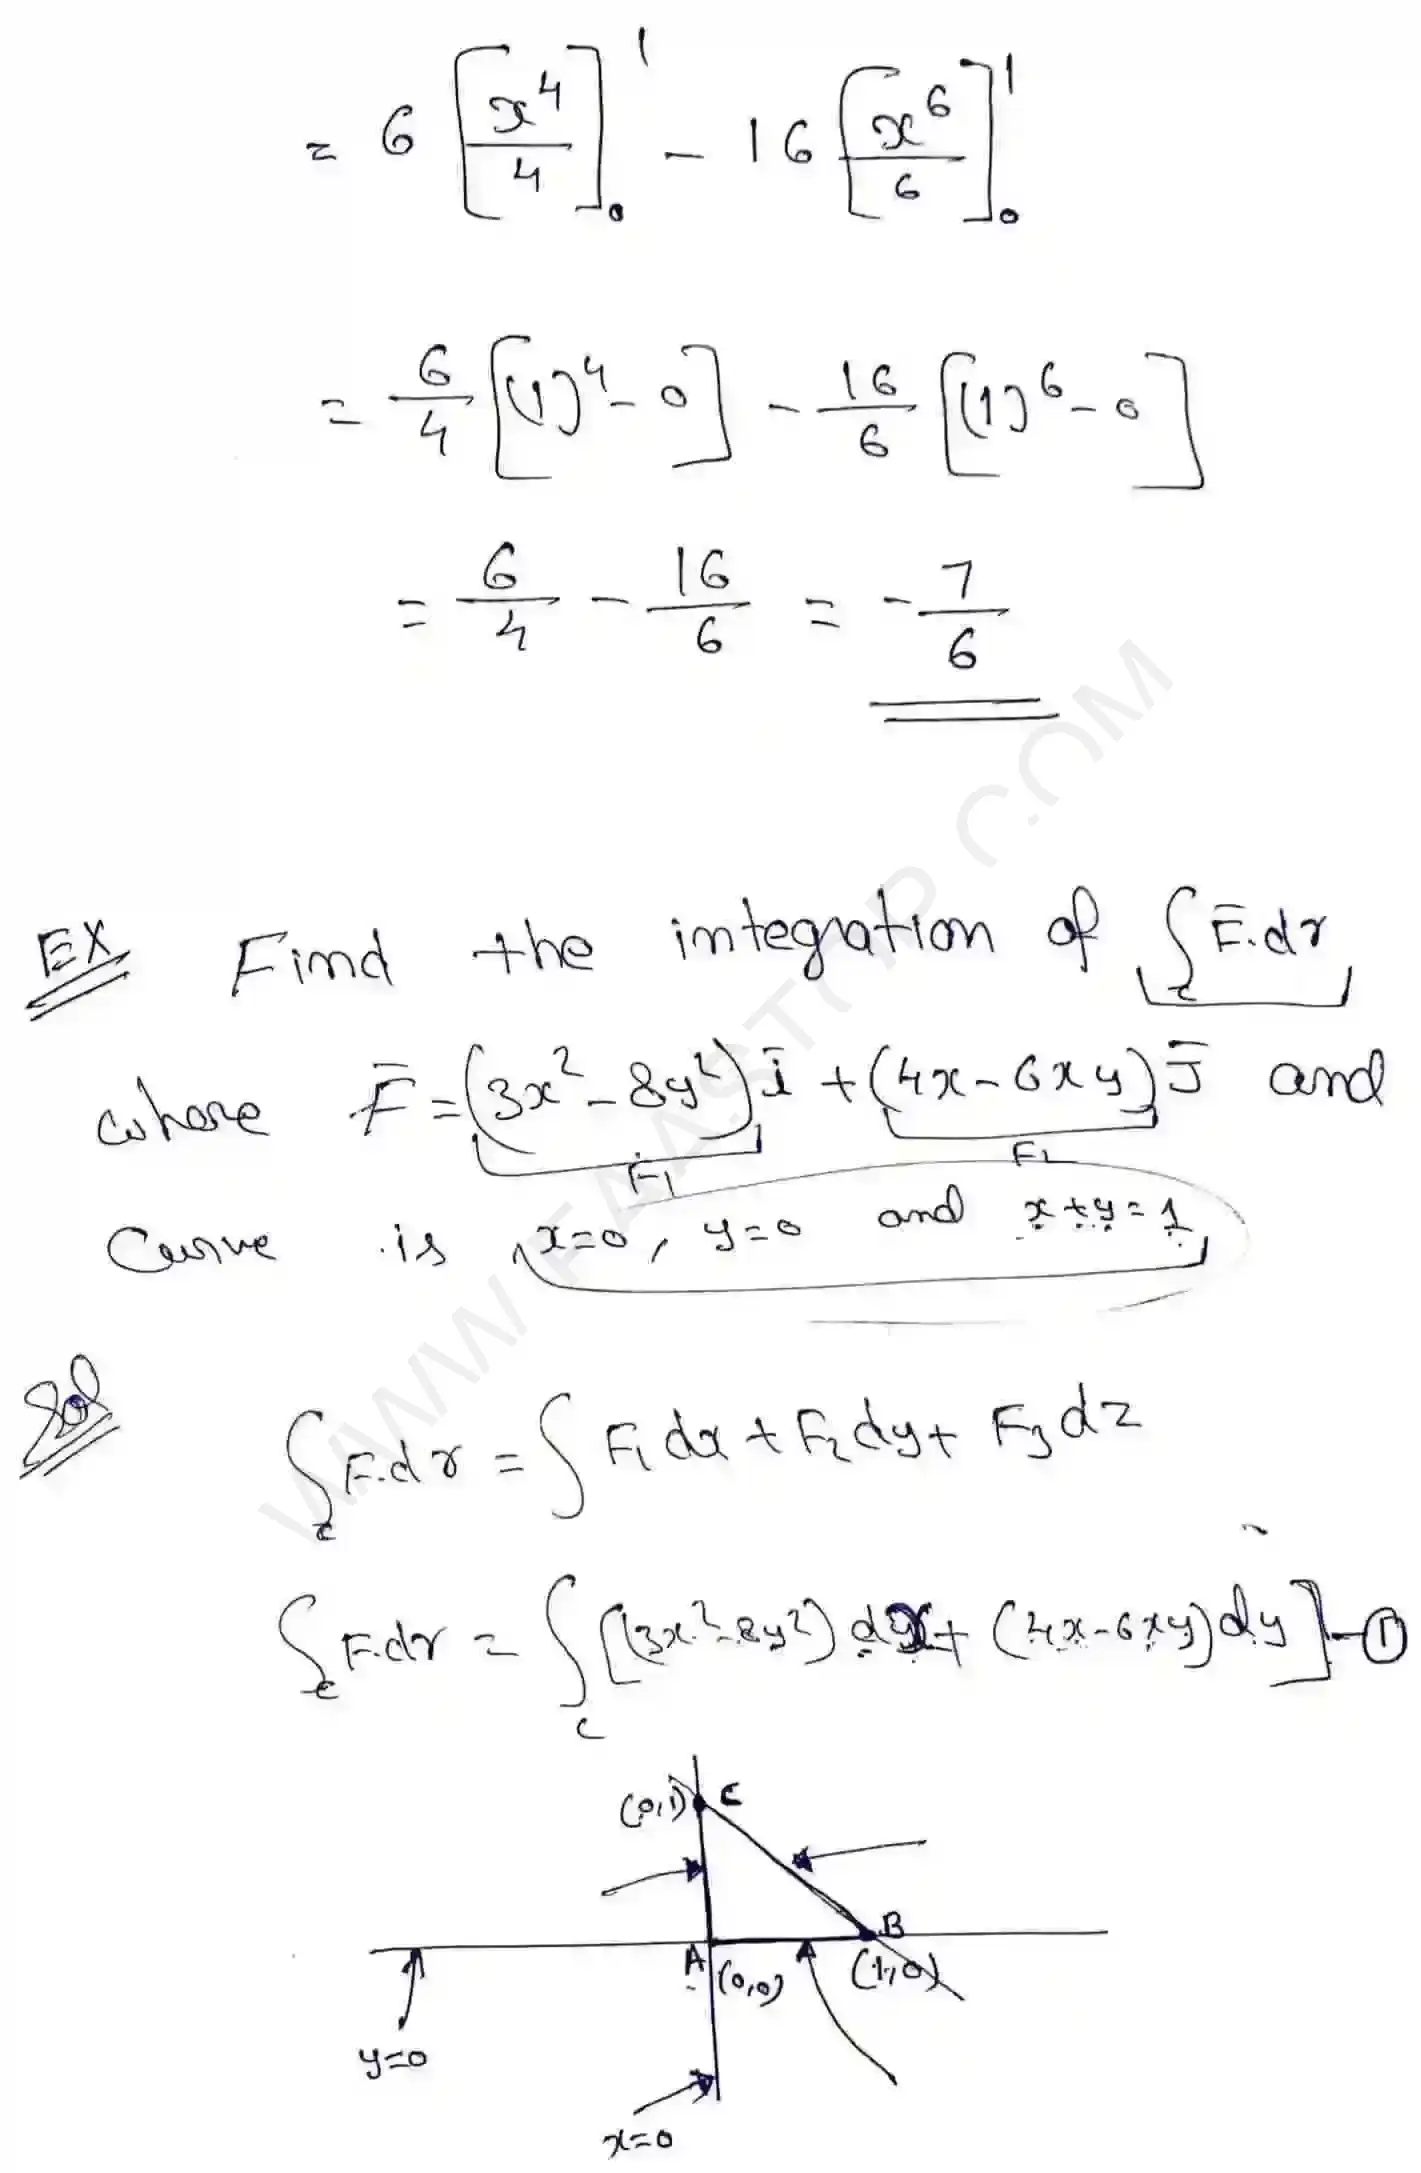 = 6 [x^4/4]_0^1 - 16 [x^6/6]_0^1
= 6/4 [(1)^4 - 0] - 16/6 [(1)^6 - 0]
= 6/4 - 16/6 = -7/6
EX Find the integration of ∫_c F̄.dr
where F̄ = (3x^2 - 8y^2) ī + (4x - 6xy) J̄ and
F1 F2
Curve is x=0, y=0 and x+y=1
Sol
∫_c F.dr = ∫ F1 dx + F2 dy + F3 dz
∫_c F.dr = ∫_C [(3x^2-8y^2) dx + (4x-6xy) dy] - ①
(0,1) C
B
A (0,0) (1,0)
y=0
x=0
WWW.FAASTTP.COM